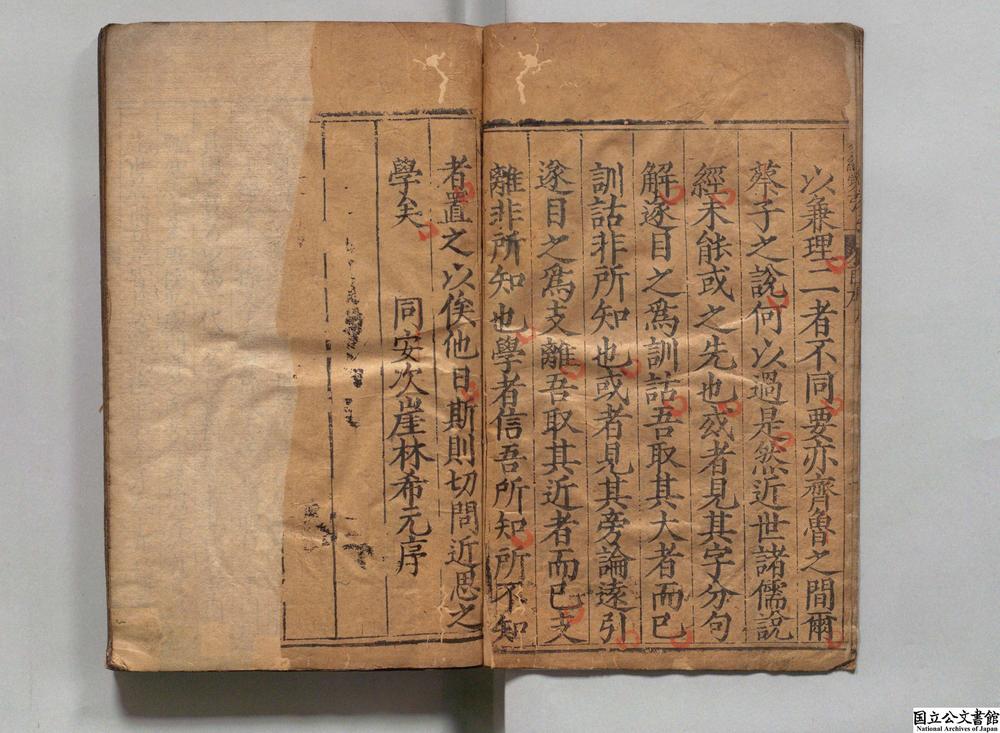 以兼理二者不同要亦齊魯之間爾
蔡子之說何以過是然近世諸儒說
經未能或之先也或者見其字分句
解遂目之爲訓詁吾取其大者而已
訓詁非所知也或者見其旁論遠引
遂目之爲支離吾取其近者而已支
離非所知也學者信吾所知所不知
者置之以俟他日斯則切問近思之
學矣
同安次崖林希元序
国立公文書館
National Archives of Japan